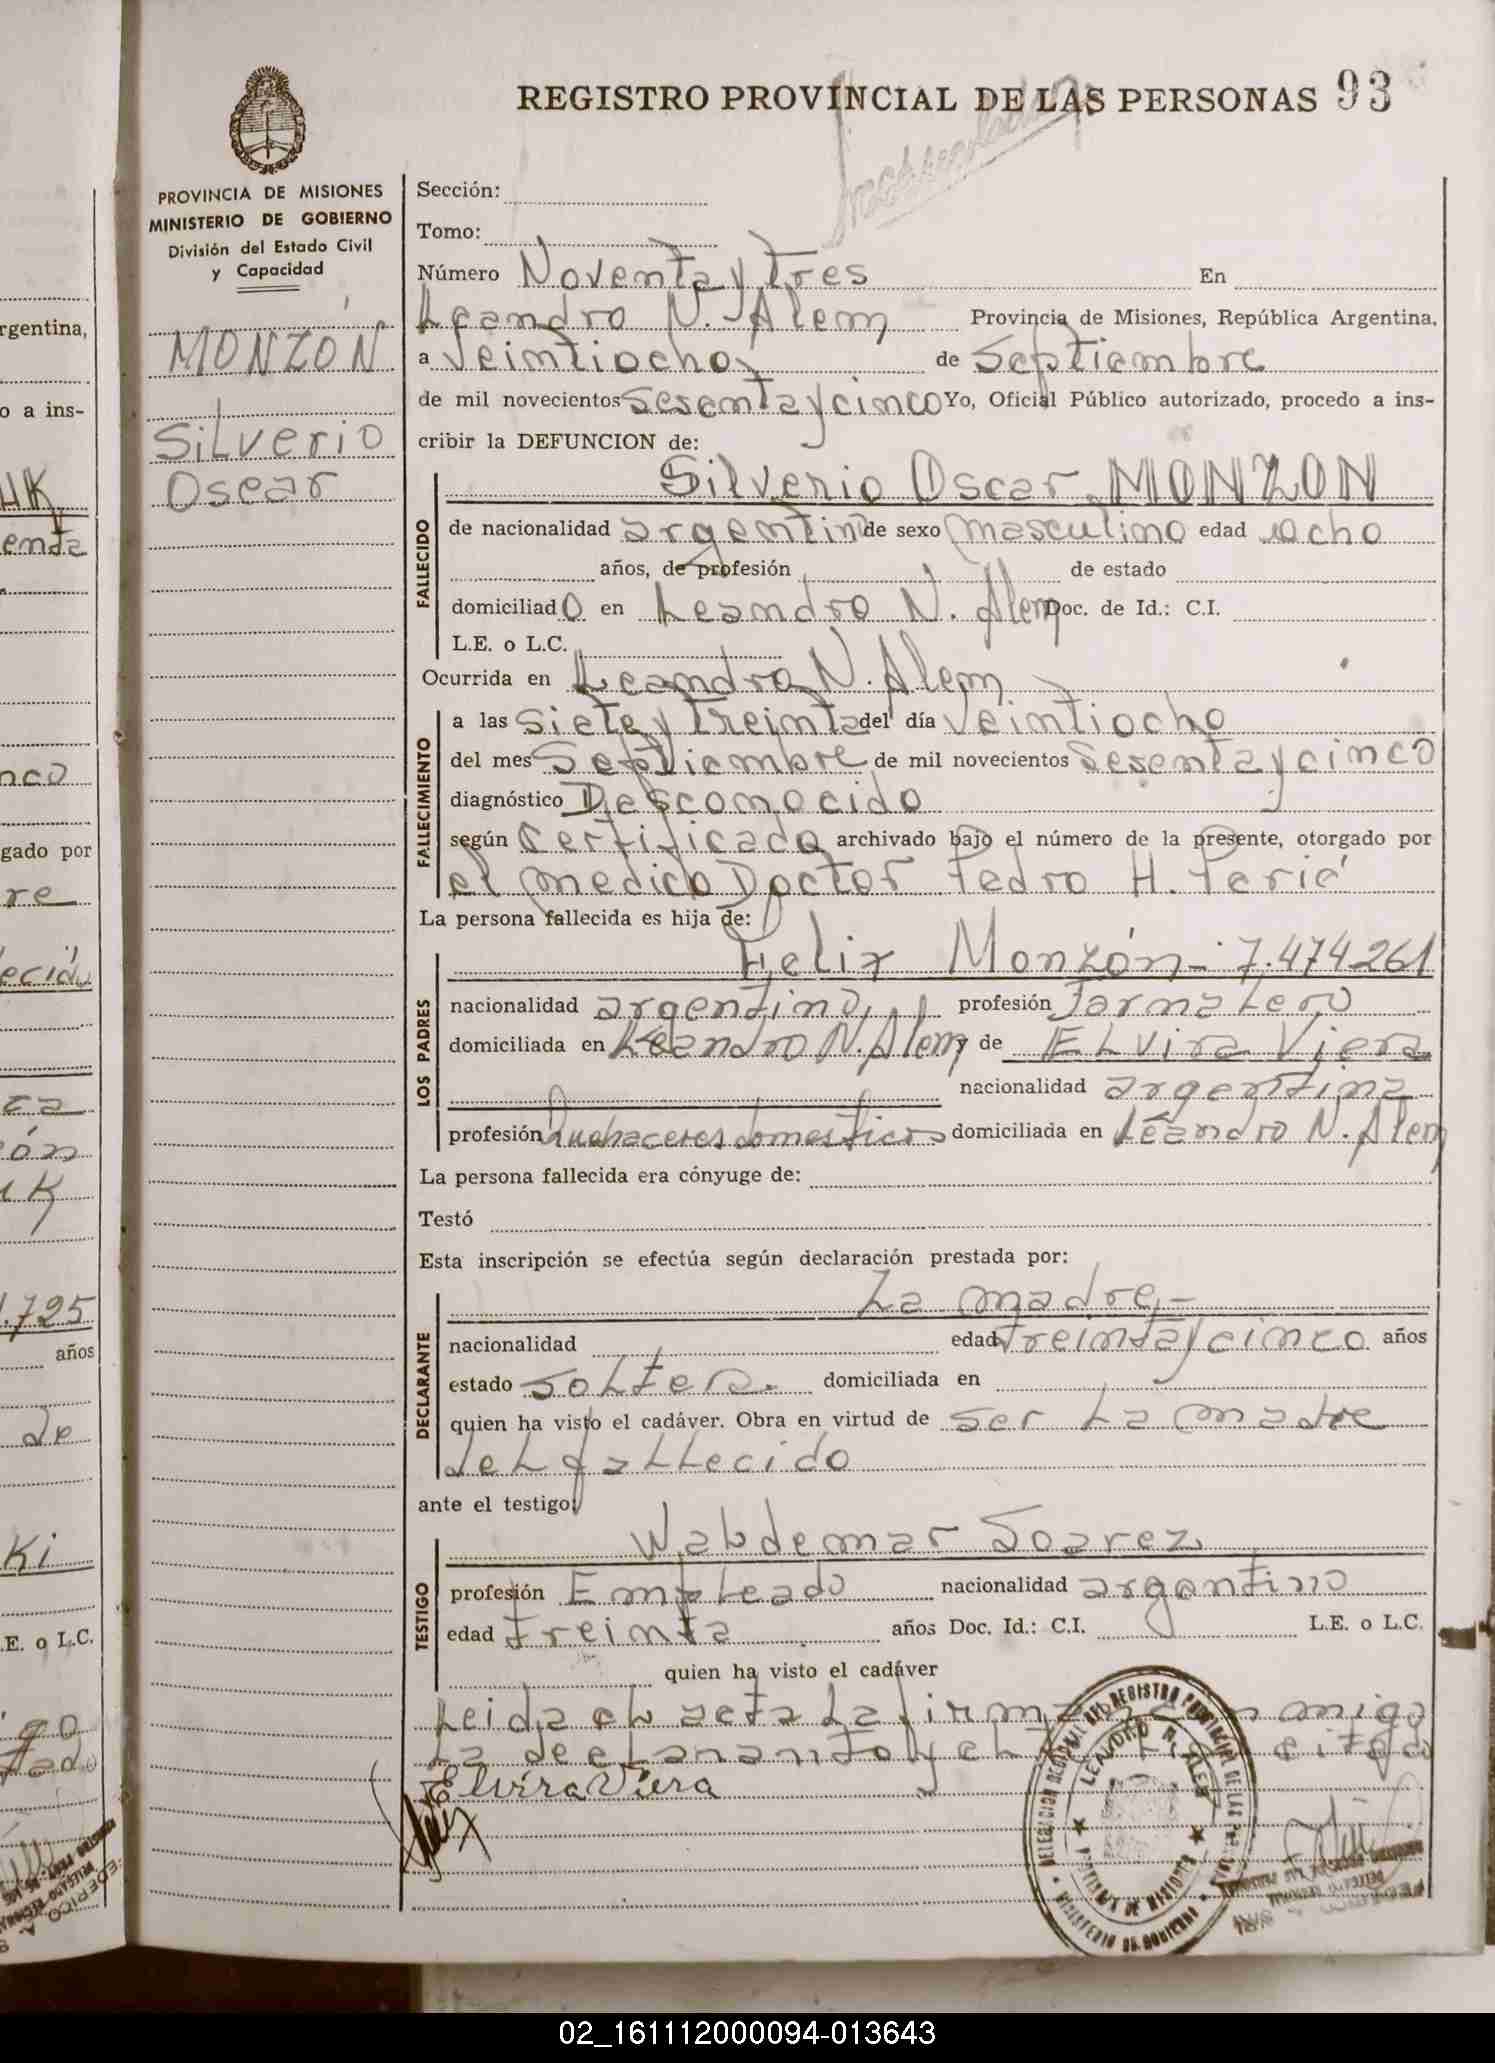 REGISTRO PROVINCIAL DE LAS PERSONAS 93
PROVINCIA DE MISIONES
MINISTERIO DE GOBIERNO
División del Estado Civil
y Capacidad
MONZÓN
Silverio
Oscar
Sección:
Tomo:
Número Noventa y tres En
Leandro N. Alem Provincia de Misiones, República Argentina,
a Veintiocho de Septiembre
de mil novecientos sesenta y cinco Yo, Oficial Público autorizado, procedo a ins-
cribir la DEFUNCION de:
Silverio Oscar MONZON
FALLECIDO
de nacionalidad argentino de sexo masculino edad ocho
años, de profesión de estado
domiciliado en Leandro N. Alem Doc. de Id.: C.I.
L.E. o L.C.
Ocurrida en Leandro N. Alem
FALLECIMIENTO
a las siete y treinta del día Veintiocho
del mes Septiembre de mil novecientos sesenta y cinco
diagnóstico Desconocido
según certificado archivado bajo el número de la presente, otorgado por
el medico Doctor Pedro H. Perié
La persona fallecida es hija de:
LOS PADRES
Felix Monzón - 7.474.261
nacionalidad argentino, profesión Jornalero
domiciliada en Leandro N. Alem y de Elvira Viera
nacionalidad argentina
profesión Quehaceres domesticos domiciliada en Leandro N. Alem
La persona fallecida era cónyuge de:
Testó
Esta inscripción se efectúa según declaración prestada por:
DECLARANTE
La madre,-
nacionalidad edad treinta y cinco años
estado soltera. domiciliada en
quien ha visto el cadáver. Obra en virtud de ser la madre
del fallecido
ante el testigo:
TESTIGO
Waldemar Soarez
profesión Empleado nacionalidad argentino
edad treinta años Doc. Id.: C.I. L.E. o L.C.
quien ha visto el cadáver
Leida el acta la firman migo
la declarante y el citado
Elvira Viera
DELEGACION REGIONAL DEL REGISTRO PROVINCIAL DE LAS
LEANDRO N. ALEM
PROVINCIA DE MISIONES
MINISTERIO DE GOBIERNO
rgentina,
o a ins-
HK
enta
nco
gado por
re
ecido
ca
ón
.725
años
de
Ki
.E. o L.C.
go
tado
02_161112000094-013643